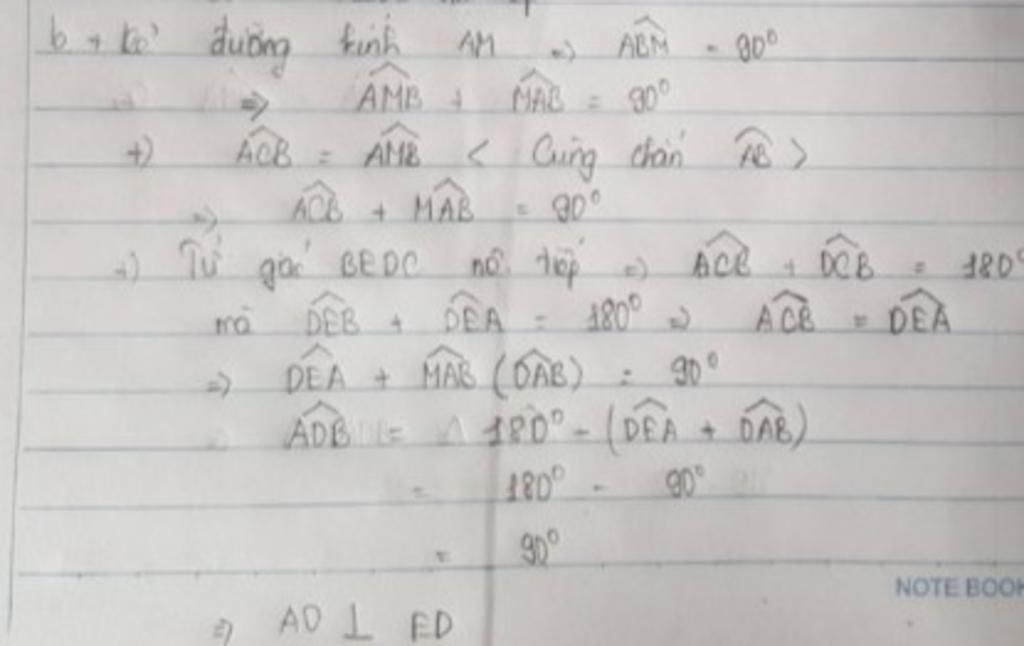 b + Kẻ đường kính AM => \widehat{ABM} = 90°
=> \widehat{AMB} + \widehat{MAB} = 90°
+) \widehat{ACB} = \widehat{AMB} < Cùng chắn \widehat{AB} >
=> \widehat{ACB} + \widehat{MAB} = 90°
+) Tứ giác BEDC nội tiếp => \widehat{ACB} + \widehat{DCB} = 180°
mà \widehat{DEB} + \widehat{DEA} = 180° => \widehat{ACB} = \widehat{DEA}
=> \widehat{DEA} + \widehat{MAB} (\widehat{OAB}) = 90°
\widehat{ADB} = 180° - (\widehat{DEA} + \widehat{OAB})
= 180° - 90°
= 90°
NOTE BOOK
=> AO ⊥ ED